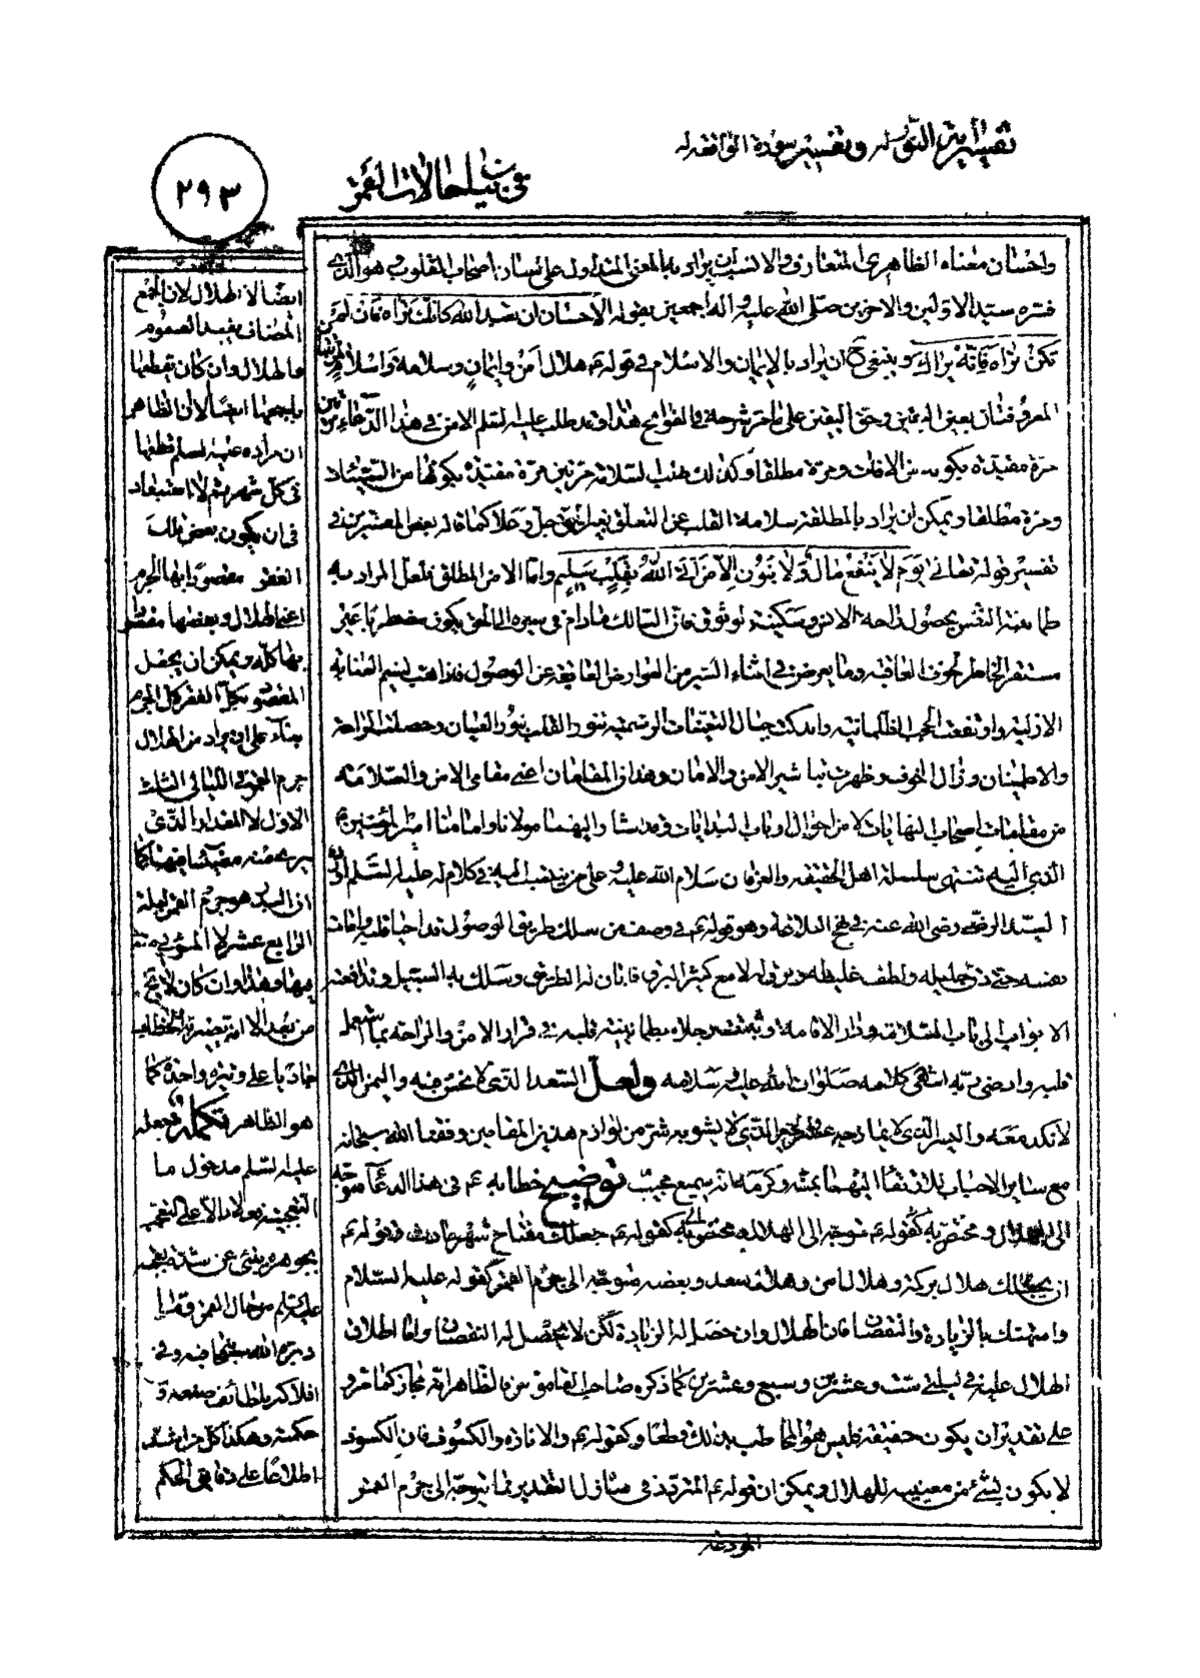 تفسير آية التوسل وتفسير سورة الواقعة
في بيان حالات القمر
٢٩٣
واحسان معناه الظاهري المتعارف والانسب ان يراد به المعنى المتداول على لسان اصحاب القلوب وهو الذي
فسره سيد الاولين والاخرين صلى الله عليه واله اجمعين بقوله الاحسان ان تعبد الله كانك تراه فان لم
تكن تراه فانه يراك وينبغي ح ان يراد بالايمان والاسلام في قوله ع هلال امن وايمان وسلامة واسلام
المعروفتان بعين اليقين وحق اليقين على ما مر شرحه في الفواتح هذا وقد طلب عليه السلم الامن في هذا الدعاء مرتين
مرة مقيدة بكونه من الافات ومرة مطلقا وكذلك طلب السلامة مرتين مرة مقيدة بكونها من السيئات
ومرة مطلقا ويمكن ان يراد بالمطلقة سلامة القلب عن التعلق بغير الحق جل وعلا كما قاله بعض المفسرين في
تفسير قوله تعالى يوم لا ينفع مال ولا بنون الا من اتى الله بقلب سليم واما الامن المطلق فلعل المراد به
طمانينة النفس بحصول راحة الانس وسكينة الوثوق فان السالك مادام في سيره الى الحق يكون مضطربا غير
مستقر الخاطر لخوف العاقبة وما يعرض في اثناء السير من العوارض العائقة عن الوصول فاذا هب نسيم العناية
الازلية وارتفعت الحجب الظلمانية واندكت جبال التعينات الرسمية تنور القلب بنور العيان وحصلت الراحة
والاطمينان وزال الخوف وظهرت تباشير الامن والامان وهذان المقامان اعني مقامي الامن والسلامة
من مقامات اصحاب النهايات لا من احوال ارباب البدايات وقد اشار اليهما مولانا وامامنا امير المؤمنين ع
الذي اليه تنتهي سلسلة اهل الحقيقة والعرفان سلام الله عليه وعلى من ينتسب اليه في كلام له عليه السلم اورده
السيد الرضي رضي الله عنه في نهج البلاغة وهو قوله ع في وصف من سلك طريق الوصول قد احيا قلبه وامات
نفسه حتى دق جليله ولطف غليظه وبرق له لامع كثير البرق فابان له الطريق وسلك به السبيل وتدافعته
الابواب الى باب السلامة ودار الاقامة وثبتت رجلاه بطمانينة قلبه في قرار الامن والراحة بما استعمل
قلبه وارضى ربه انتهى كلامه صلوات الله عليه وسلامه ولعل السعد الذي لا نحس فيه واليمن الذي
لا نكد معه واليسر الذي لا يمازجه عسر والخير الذي لا يشوبه شر من لوازم هذين المقامين وفقنا الله سبحانه
مع سائر الاحباب للارتقاء اليهما بمنه وكرمه انه سميع مجيب توضيح خطابه ع في هذا الدعاء متوجه
الى الهلال ومختص به كقوله ع جعلك مفتاح شهر حادث وقوله ع
ان يجعلك هلال بركة وهلال امن وهلال سعد وبعضه متوجه الى جرم القمر كقوله عليه السلام
وامتهنك بالزيادة والنقصان فان الهلال وان حصل له الزيادة لكن لا يحصل له النقصان واما اطلاق
الهلال عليه في ليلتي ست وعشرين وسبع وعشرين كما ذكره صاحب القاموس فالظاهر انه مجاز كما مر
على تقدير ان يكون حقيقة فليس هو المخاطب بذلك قطعا وكقوله ع والانارة والكسوف فان الكسوف
لا يكون لشيء من معنييه للهلال ويمكن ان قوله ع المتردد في منازل التقدير مما يتوجه الى جرم القمر
المودعة
ايضا لا الهلال لان الجمع
المضاف يفيد العموم
والهلال وان كان يقطعها
باجمعها ايضا لان الظاهر
ان مراده عليه السلم قطعها
في كل شهر ثم لا استبعاد
في ان يكون بعض تلك
الفقر مقصودا بها الجرم
اعني الهلال وبعضها مقصودا
بها كله ويمكن ان يجعل
المقصود بكل الفقر كل الجرم
بناء على ان يراد من الهلال
جرم القمر في الليالي الثلث
الاول لا المقدار الذي
يرى منه مضيئا فيها كما
ان البدر هو جرم القمر ليلة
الرابع عشر لا المرئي منه
فيها وهذا وان كان لا يخ
من بعد الا انه يصير به الخطاب
جاريا على وتيرة واحدة كما
هو الظاهر تكملة جعله
عليه السلم مدخول ما
التعجبية فعلا دالا على التعجب
بجوهره ينبئ عن شدة تعجبه
عليه السلم من حال القمر وما
دبره الله سبحانه فيه وفي
افلاكه بلطائف صنعه و
حكمته وهكذا كل من هو اشد
اطلاعا على دقائق الحكم